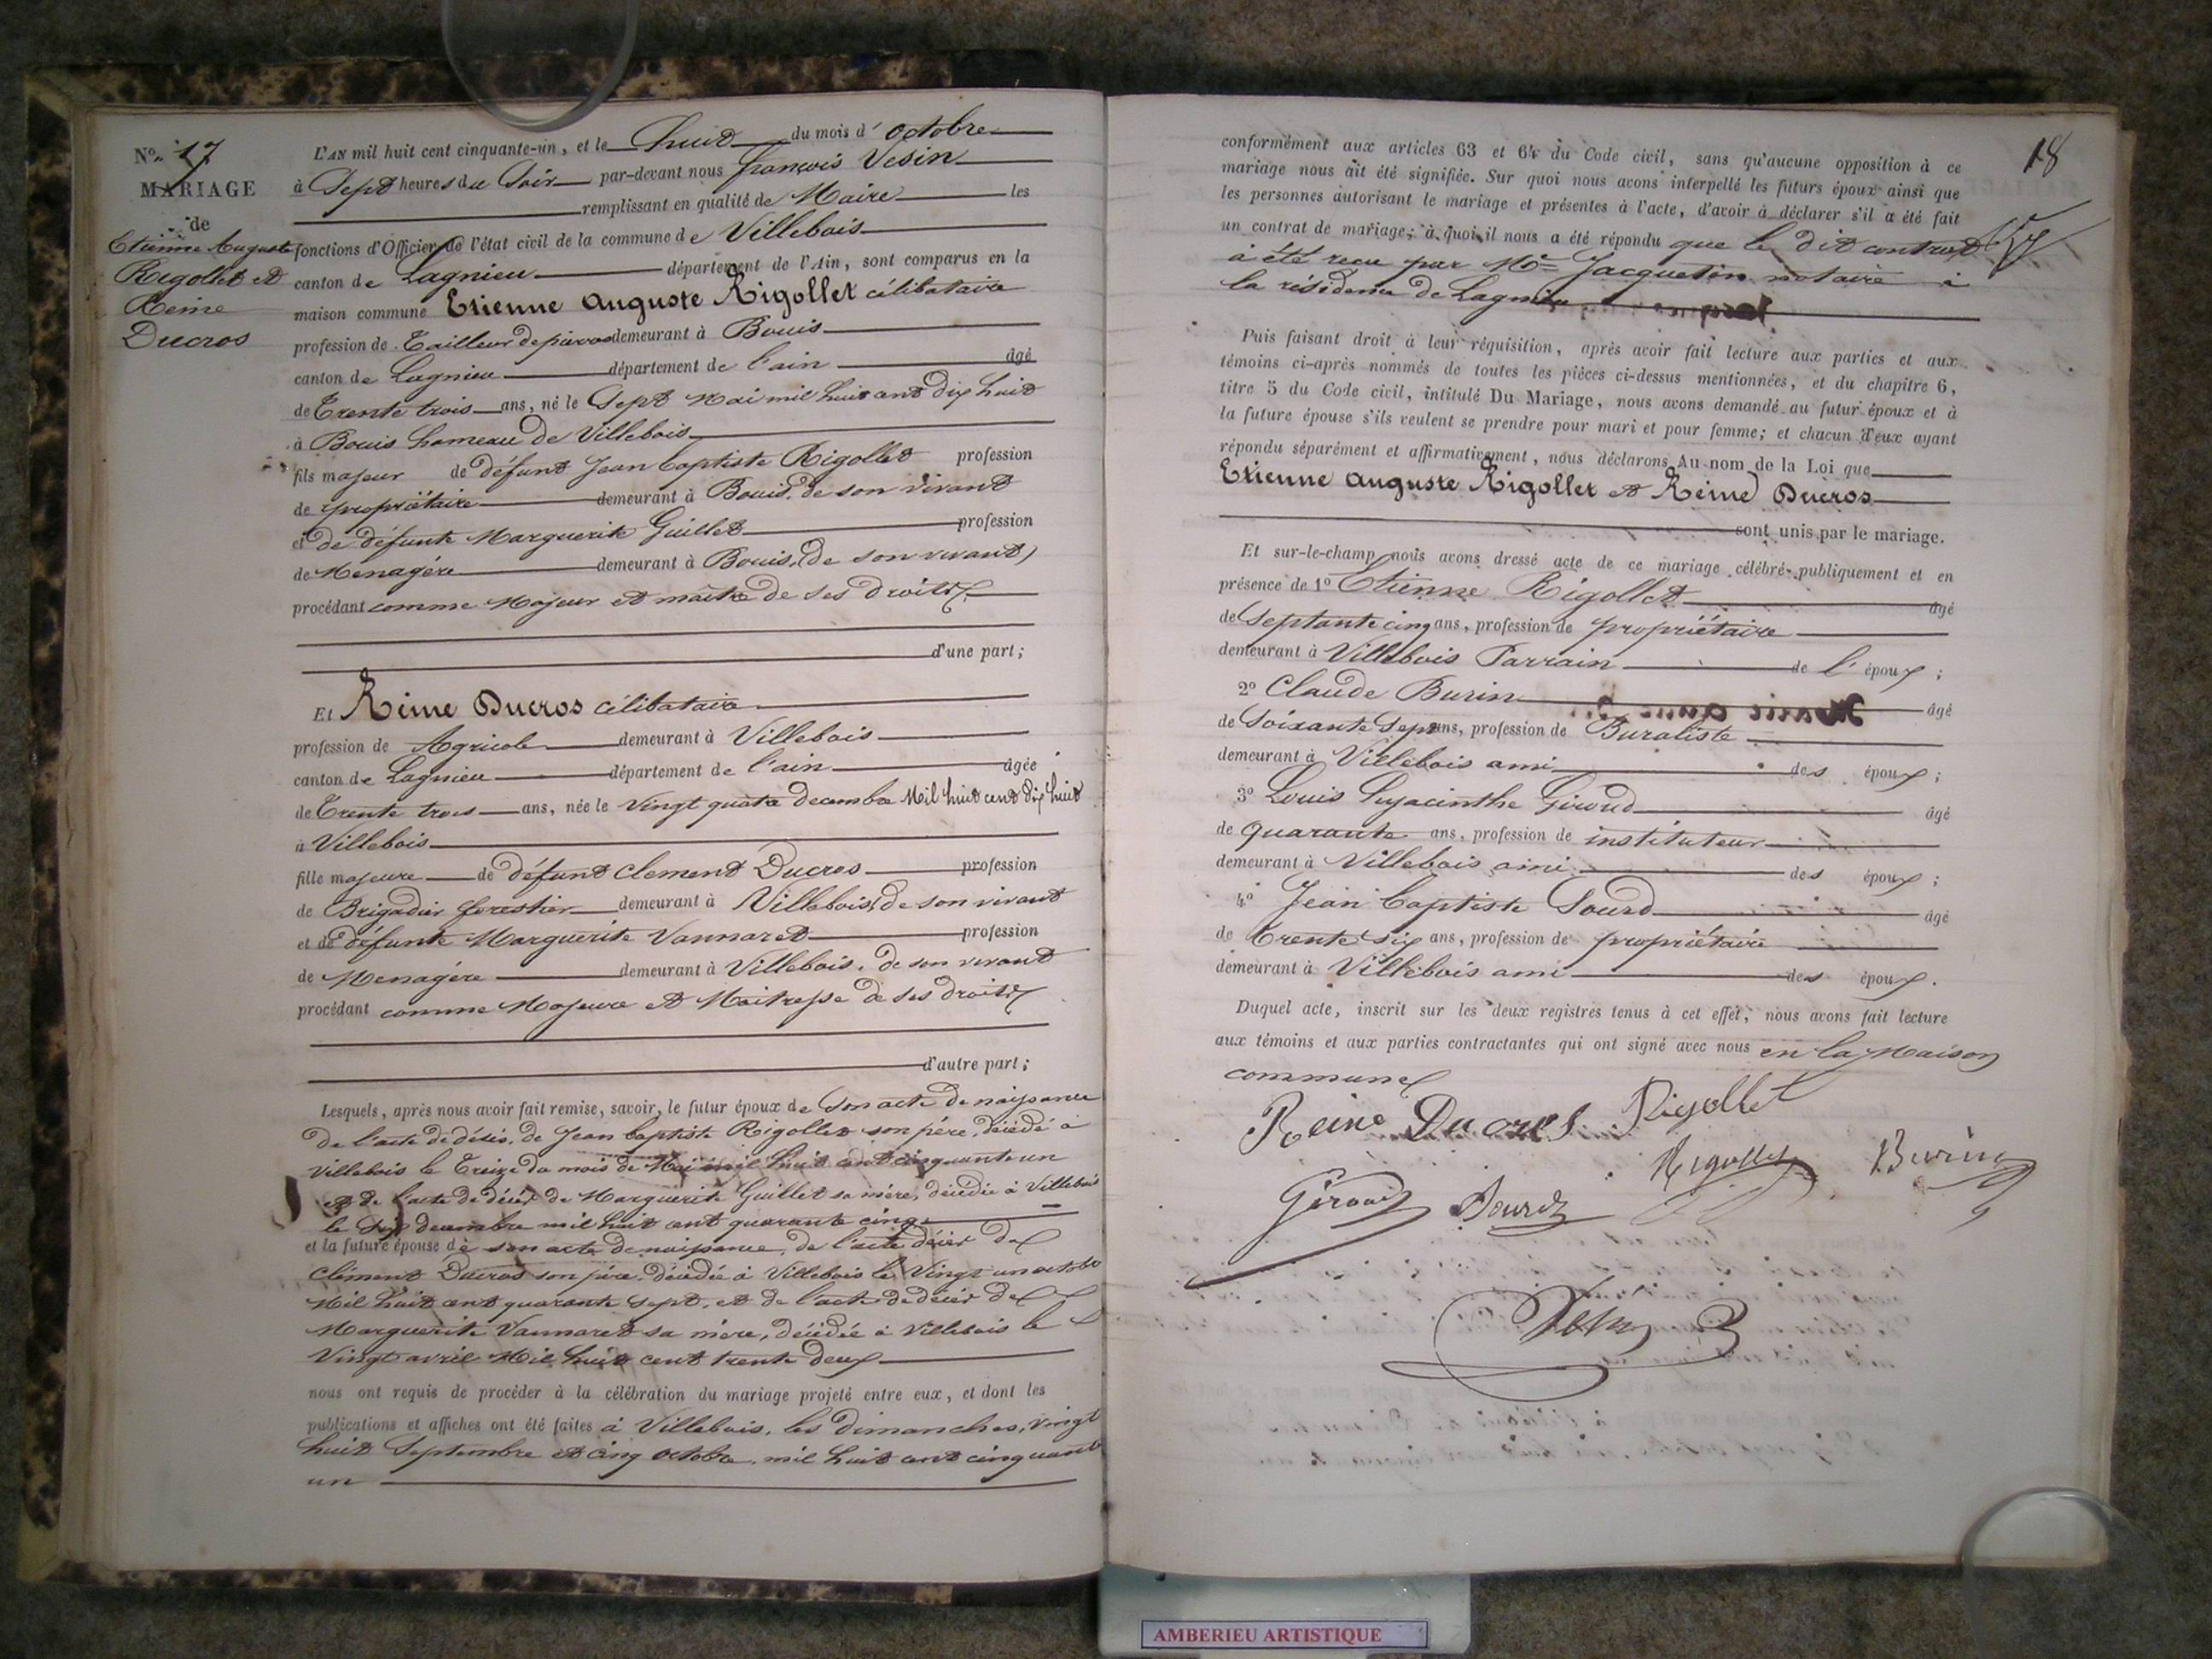 N° 17
MARIAGE
de
Etienne Auguste
Rigollet et
Reine
Ducros
L'AN mil huit cent cinquante-un, et le huit du mois d'octobre
à Sept heures du Soir par-devant nous françois Vesin
remplissant en qualité de Maire les
fonctions d'Officier de l'état civil de la commune de Villebois
canton de Lagnieu département de l'Ain, sont comparus en la
maison commune Etienne Auguste Rigollet célibataire
profession de Tailleur de pierres demeurant à Bouis
canton de Lagnieu département de l'ain âgé
de Trente trois ans, né le Sept Mai mil huit cent dix huit
à Bouis hameau de Villebois
fils majeur de défunt Jean Baptiste Rigollet profession
de propriétaire demeurant à Bouis, de son vivant
et de défunte Marguerite Guillet profession
de Menagère demeurant à Bouis, (de son vivant)
procédant comme Majeur et maître de ses droits
d'une part;
Et Reine Ducros célibataire
profession de Agricole demeurant à Villebois
canton de Lagnieu département de l'ain âgée
de Trente trois ans, née le Vingt quatre decembre Mil huit cent dix huit
à Villebois
fille majeure de défunt Clement Ducros profession
de Brigadier forestier demeurant à Villebois, de son vivant
et de défunte Marguerite Vannaret profession
de Menagère demeurant à Villebois, de son vivant
procédant comme Majeure et Maitresse de ses droits
d'autre part;
Lesquels, après nous avoir fait remise, savoir, le futur époux de Son acte de naissance
de l'acte de décès, de Jean Baptiste Rigollet son père, décédé à
Villebois le Treize du mois de Mai mil huit cent cinquante un
et de l'acte de décès de Marguerite Guillet sa mère, décédée à Villebois
le Six decembre mil huit cent quarante cinq
et la future épouse de son acte de naissance, de l'acte décès de
Clément Ducros son père, décédée à Villebois le Vingt un octobre
Mil huit cent quarante sept, et de l'acte de décès de
Marguerite Vannaret sa mère, décédée à Villebois le
Vingt avril Mil huit cent trente deux
nous ont requis de procéder à la célébration du mariage projeté entre eux, et dont les
publications et affiches ont été faites à Villebois, les dimanches, vingt
huit Septembre et cinq octobre, mil huit cent cinquante
un
18
conformément aux articles 63 et 64 du Code civil, sans qu'aucune opposition à ce
mariage nous ait été signifiée. Sur quoi nous avons interpellé les futurs époux ainsi que
les personnes autorisant le mariage et présentes à l'acte, d'avoir à déclarer s'il a été fait
un contrat de mariage; à quoi il nous a été répondu que le dit contrat
à été recu par Me Jacquetin notaire à
la résidence de Lagnieu
Puis faisant droit à leur réquisition, après avoir fait lecture aux parties et aux
témoins ci-après nommés de toutes les pièces ci-dessus mentionnées, et du chapitre 6,
titre 5 du Code civil, intitulé Du Mariage, nous avons demandé au futur époux et à
la future épouse s'ils veulent se prendre pour mari et pour femme; et chacun d'eux ayant
répondu séparément et affirmativement, nous déclarons Au nom de la Loi que
Etienne Auguste Rigollet et Reine Ducros
sont unis par le mariage.
Et sur-le-champ nous avons dressé acte de ce mariage célébré publiquement et en
présence de 1° Etienne Rigollet âgé
de Septante cinq ans, profession de propriétaire
demeurant à Villebois Parrain de l'époux;
2° Claude Burin âgé
de Soixante Sept ans, profession de Buraliste
demeurant à Villebois ami des époux;
3° Louis hyacinthe Giroud âgé
de quarante ans, profession de instituteur
demeurant à Villebois ami des époux;
4° Jean Baptiste Sourd âgé
de Trente six ans, profession de propriétaire
demeurant à Villebois ami des époux.
Duquel acte, inscrit sur les deux registres tenus à cet effet, nous avons fait lecture
aux témoins et aux parties contractantes qui ont signé avec nous en la Maison
commune
Reine Ducros Rigollet
Rigollet Burin
Giroud Sourd
Vesin
AMBERIEU ARTISTIQUE